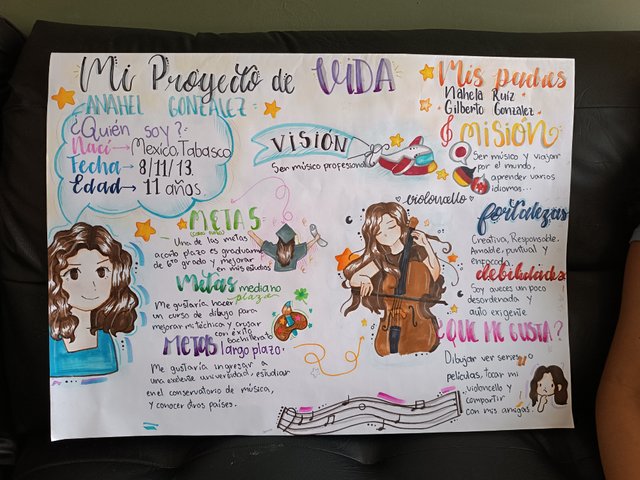 Mi Proyecto de VIDA
ANAHEL GONZÁLEZ
¿Quién soy?
Nací → Mexico, Tabasco
Fecha → 8/11/13.
Edad → 11 años.
VISIÓN
Ser músico profesional
Mis padres
Nahela Ruiz
Gilberto González
MISIÓN
Ser músico y viajar
por el mundo,
aprender varios
idiomas...
METAS
Una de las metas
a corto plazo es graduarme
de 6to grado y mejorar
en mis estudios
Metas mediano
plazo
Me gustaría hacer
un curso de dibujo para
mejorar mi técnica y cursar
con éxito
bachillerato
METAS largo plazo.
Me gustaría ingresar a
una excelente universidad, estudiar
en el conservatorio de música,
y conocer otros países.
violoncello
fortalezas
Creativa, Responsable.
Amable, puntual y
Enfocada.
debilidades
Soy aveces un poco
desordenada y
auto exigente
¿QUE ME GUSTA?
Dibujar ver series
películas, tocar mi
violoncello y
compartir
con mis amigas.